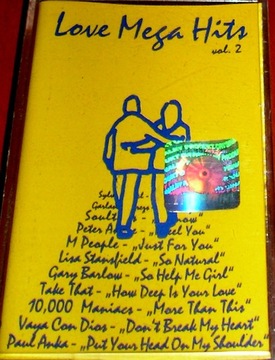 Love Mega Hits
vol. 2
Peter „ Feel You"
M People - „Just For You"
Lisa Stansfield - „So Natural"
Gary Barlow - „So Help Me Girl"
Take That - „How Deep Is Your Love"
10,000 Maniacs - „More Than This"
Vaya Con Dios - „Don't Break My Heart"
Paul Anka - „Put Your Head On My Shoulder"